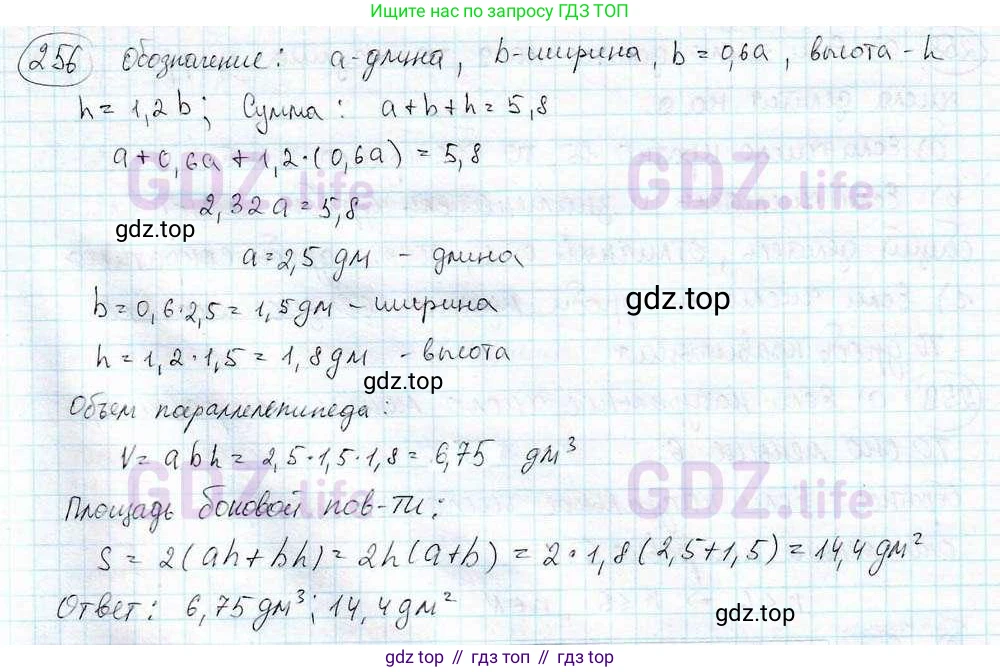 Ищите решение по запросу ГДЗ ТОП
256 Обозначение: a-длина, b-ширина, b = 0,6a, высота - h
h = 1,2b; Сумма: a+b+h = 5,8
a+0,6a+1,2·(0,6a) = 5,8
GDZ.life GDZ.life
2,32a = 5,8
gdz.top
a = 2,5 дм - длина
gdz.top
b = 0,6·2,5 = 1,5 дм - ширина
h = 1,2·1,5 = 1,8 дм - высота
gdz.top
Объем параллелепипеда:
V = abh = 2,5·1,5·1,8 = 6,75 дм³
GDZ.life GDZ.life
Площадь боковой пов-ти:
S = 2(ah+bh) = 2h(a+b) = 2·1,8(2,5+1,5) = 14,4 дм²
Ответ: 6,75 дм³; 14,4 дм²
gdz.top
gdz топ // гдз топ // гдз top